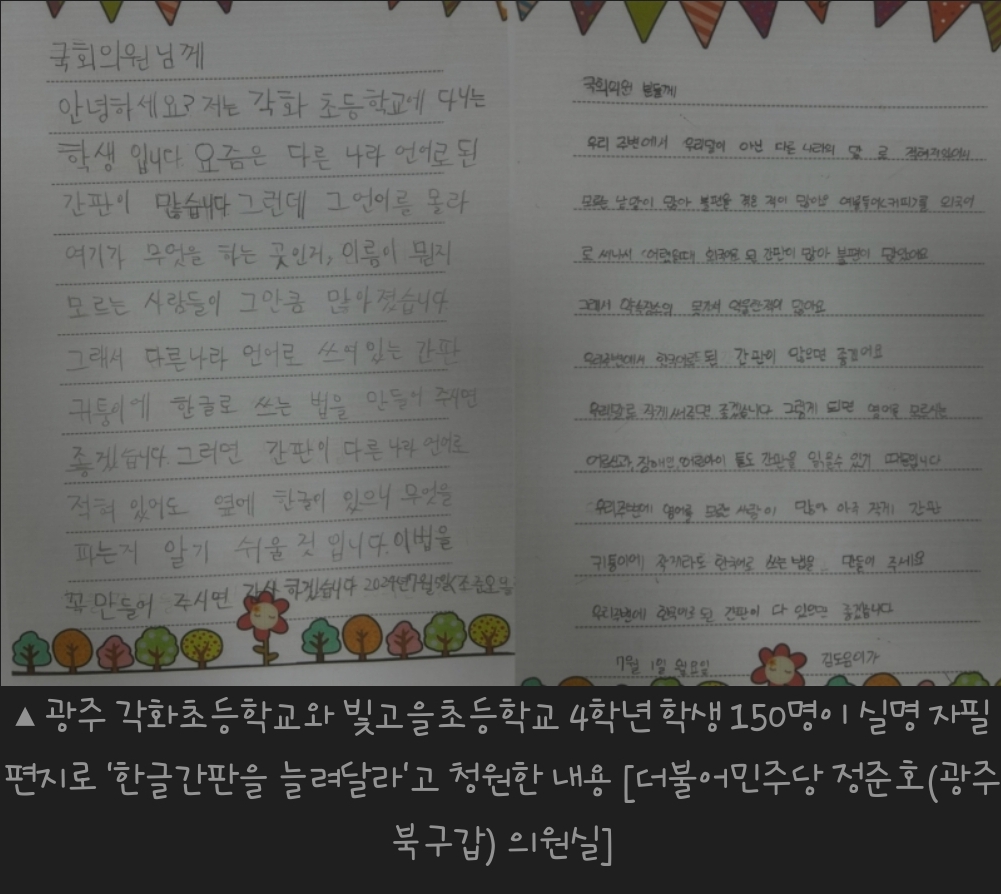 국회의원님께
안녕하세요? 저는 각화 초등학교에 다니는
학생 입니다. 요즘은 다른 나라 언어로 된
간판이 많습니다 그런데 그 언어를 몰라
여기가 무엇을 하는 곳인지, 이름이 뭔지
모르는 사람들이 그만큼 많아졌습니다
그래서 다른나라 언어로 쓰여있는 간판
귀퉁이에 한글로 쓰는 법을 만들어 주시면
좋겠습니다. 그러면 간판이 다른 나라 언어로
적혀 있어도 옆에 한글이 있으니 무엇을
파는지 알기 쉬울 것 입니다. 이법을
꼭 만들어 주시면 감사 하겠습니다 2024년 7월
국회의원 분들께
우리 주변에서 우리말이 아닌 다른 나라의 말 로 적혀져있어서
모르는 낱말이 많아 불편을 겪은 적이 많아요 외국어
로 외국어로 된 간판이 많아 불편이 많았어요
그래서 약속장소의 못가서 억울한적이 많아요
우리주변에서 한국어로 된 간판이 많으면 좋겠어요
우리말로 작게 써주면 좋겠습니다 그렇게 되면 영어를 모르시는
어르신과, 장애인, 어린아이 들도 간판을 읽을수 있기 때문입니다
우리주변에 영어를 모르는 사람이 많아 아주 작게 간판
귀퉁이에 작게라도 한국어로 쓰는법을 만들어 주세요
우리주변에 한국어로 된 간판이 다 있으면 좋겠습니다
7월 1일 월요일 김도윤이가
▲광주 각화초등학교와 빛고을초등학교 4학년 학생 150명이 실명 자필
편지로 '한글간판을 늘려달라'고 청원한 내용 [더불어민주당 정준호(광주
북구갑) 의원실]